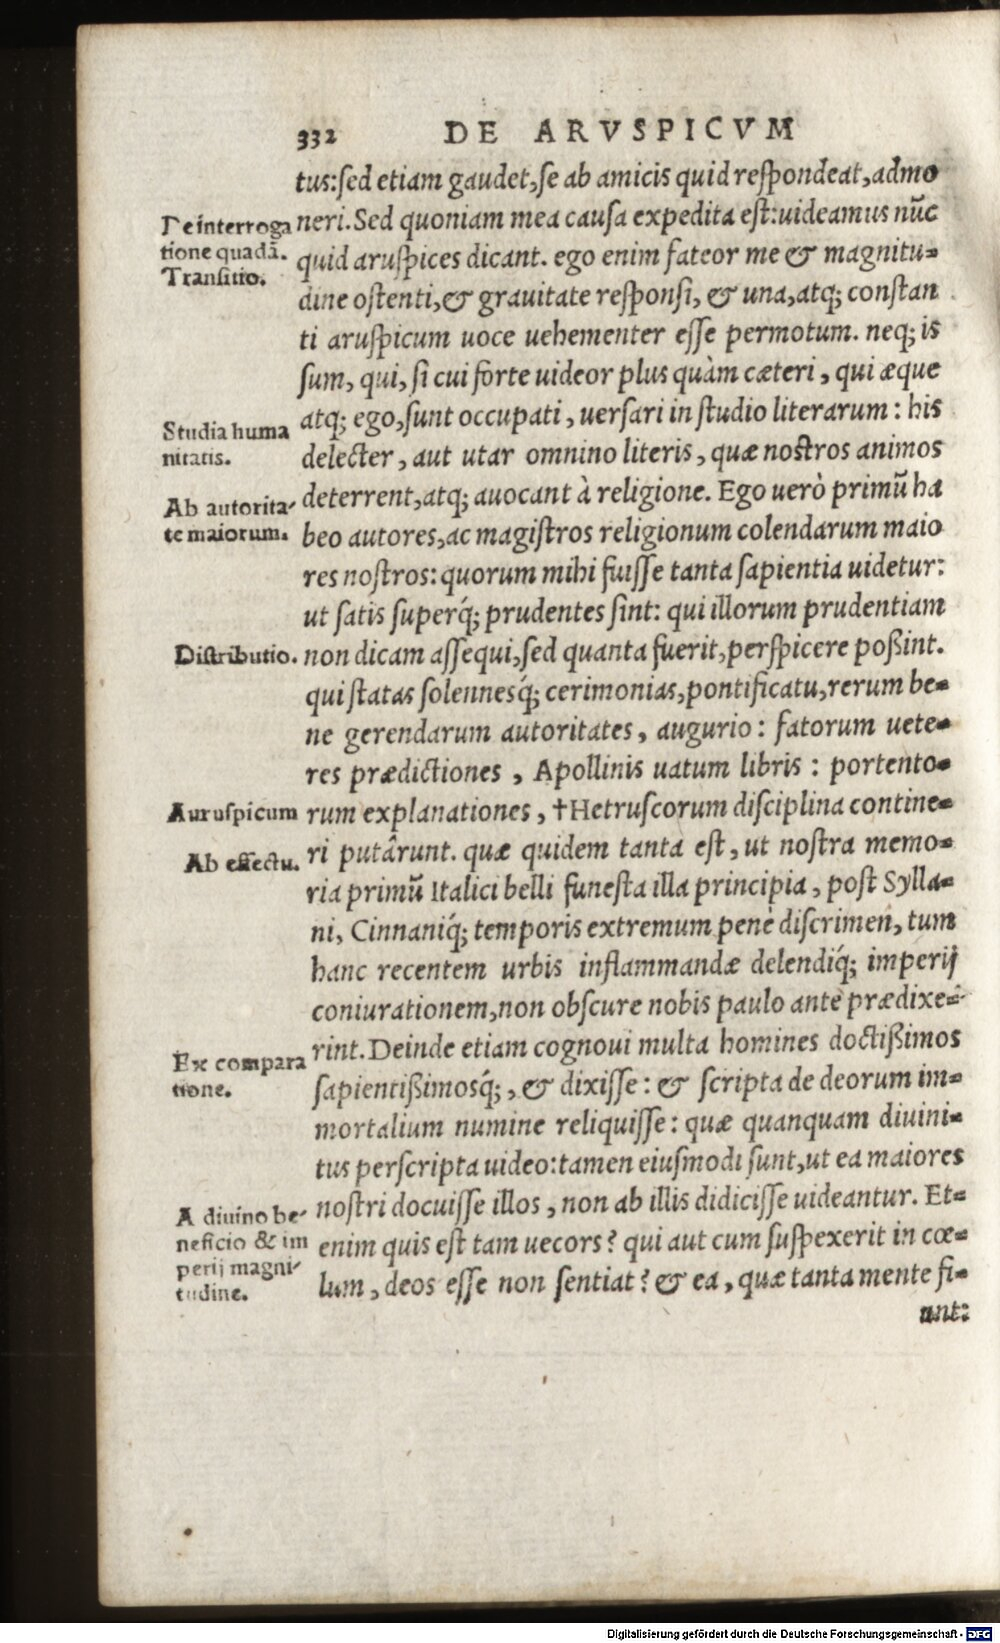 332 DE ARVSPICVM
tus:sed etiam gaudet,se ab amicis quid respondeat,admo
neri. Sed quoniam mea causa expedita est:uideamus nũc
quid aruspices dicant. ego enim fateor me & magnitu=
dine ostenti,& grauitate responsi, & una,atq; constan
ti aruspicum uoce uehementer esse permotum. neq; is
sum, qui, si cui forte uideor plus quàm cæteri, qui æque
atq; ego,sunt occupati, uersari in studio literarum: his
delecter, aut utar omnino literis, quæ nostros animos
deterrent,atq; auocant à religione. Ego uerò primũ ha
beo autores,ac magistros religionum colendarum maio
res nostros: quorum mihi fuisse tanta sapientia uidetur:
ut satis superq́; prudentes sint: qui illorum prudentiam
non dicam assequi,sed quanta fuerit,perspicere poßint.
qui statas solennesq́; cerimonias,pontificatu,rerum be=
ne gerendarum autoritates, augurio: fatorum uete=
res prædictiones, Apollinis uatum libris: portento=
rum explanationes, †Hetruscorum disciplina contine=
ri putârunt. quæ quidem tanta est, ut nostra memo=
ria primũ Italici belli funesta illa principia, post Sylla=
ni, Cinnaniq́; temporis extremum pene discrimen, tum
hanc recentem urbis inflammandæ delendiq́; imperij
coniurationem,non obscure nobis paulo ante prædixe=
rint. Deinde etiam cognoui multa homines doctißimos
sapientißimosq́;, & dixisse: & scripta de deorum im=
mortalium numine reliquisse: quæ quanquam diuini=
tus perscripta uideo:tamen eiusmodi sunt,ut ea maiores
nostri docuisse illos, non ab illis didicisse uideantur. Et=
enim quis est tam uecors? qui aut cum suspexerit in cœ=
lum, deos esse non sentiat? & ea, quæ tanta mente fi=
unt:
De interroga
tione quadã.
Transitio.
Studia huma
nitatis.
Ab autorita-
te maiorum.
Distributio.
Auruspicum
Ab effectu.
Ex compara
tione.
A diuino be-
neficio & im
perij magni-
tudine.
Digitalisierung gefördert durch die Deutsche Forschungsgemeinschaft - DFG